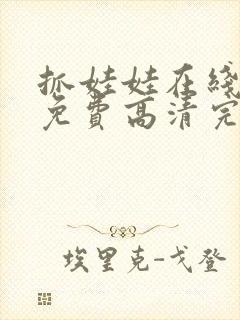 抓娃娃在线
免费高清完
埃里克-戈登